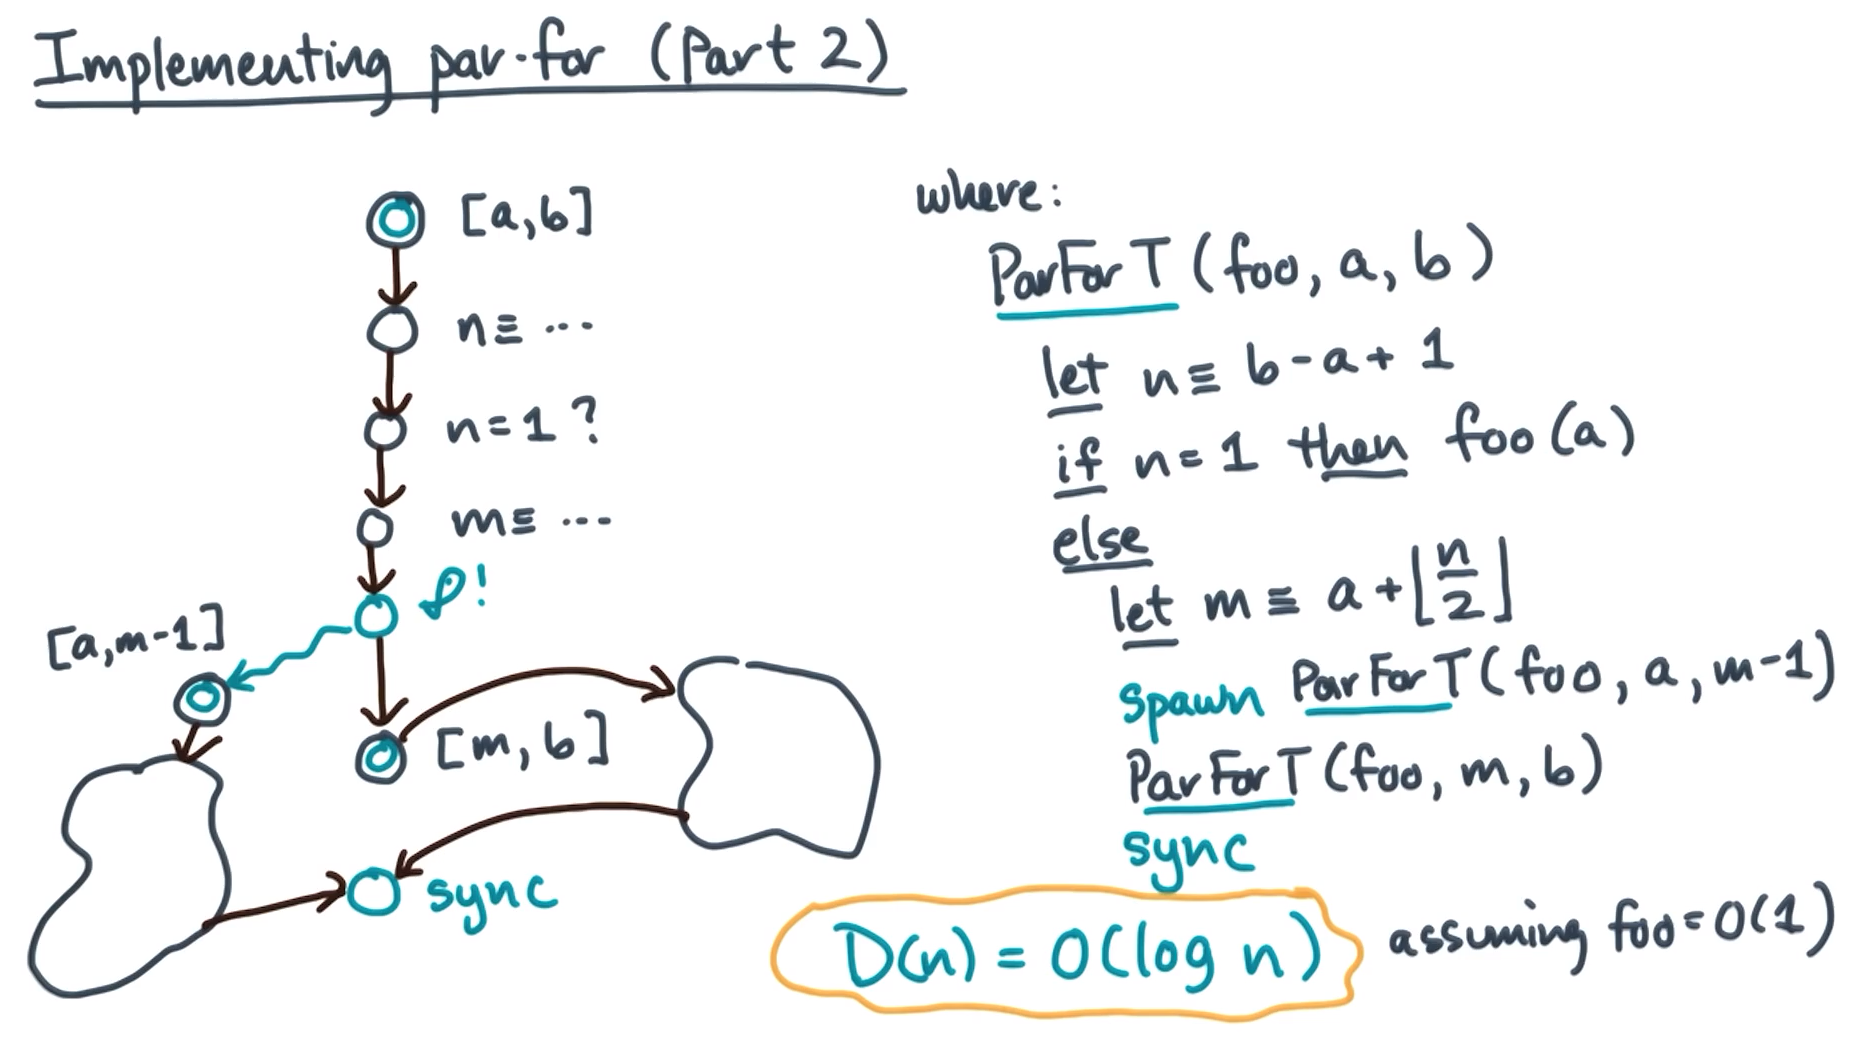 Implementing par-for (Part 2)
[a,b]
n≡ ...
n=1 ?
m≡ ...
℘!
[a,m-1]
[m,b]
sync
where:
ParForT (foo, a, b)
let n≡ b-a+1
if n=1 then foo(a)
else
let m ≡ a+⌊n/2⌋
spawn ParForT(foo, a, m-1)
ParForT(foo, m, b)
sync
D(n) = O(log n) assuming foo=O(1)